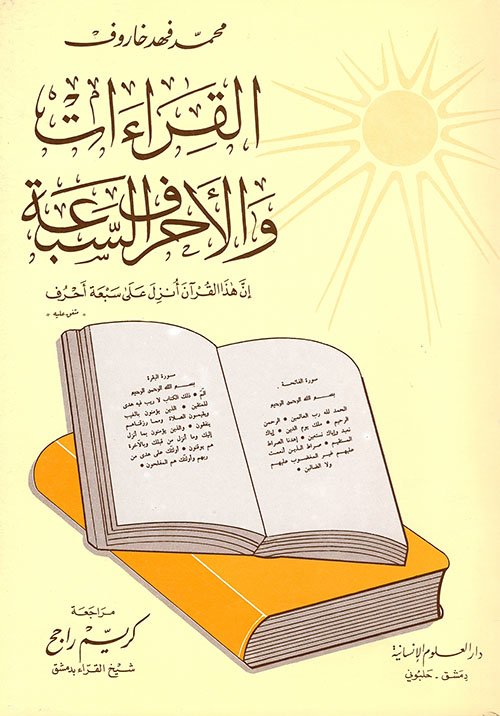 محمّد فهد خاروف
القِرَاءَات
وَالأَحرُف السَّبعَة
إنَّ هٰذَا القُرآنَ أُنزِلَ عَلىٰ سَبْعَة أَحْرُف
* متفق عليه *
سورة الفاتحة
بسم الله الرحمن الرحيم
الحمد لله رب العالمين • الرحمن
الرحيم • ملك يوم الدين • إياك
نعبد وإياك نستعين • إهدنا الصراط
المستقيم • صراط الذين أنعمت
عليهم غير المغضوب عليهم
ولا الضالين •
سورة البقرة
بسم الله الرحمن الرحيم
الم • ذلك الكتاب لا ريب فيه هدى
للمتقين • الذين يؤمنون بالغيب
ويقيمون الصلاة ومما رزقناهم
ينفقون • والذين يؤمنون بما أنزل
إليك وما أنزل من قبلك وبالآخرة
هم يوقنون • أولئك على هدى من
ربهم وأولئك هم المفلحون •
مراجَعَة
كريّم راجح
شيخ القرّاء بدمشق
دار العلوم الإنسانية
دِمَشق - حَلبُوني